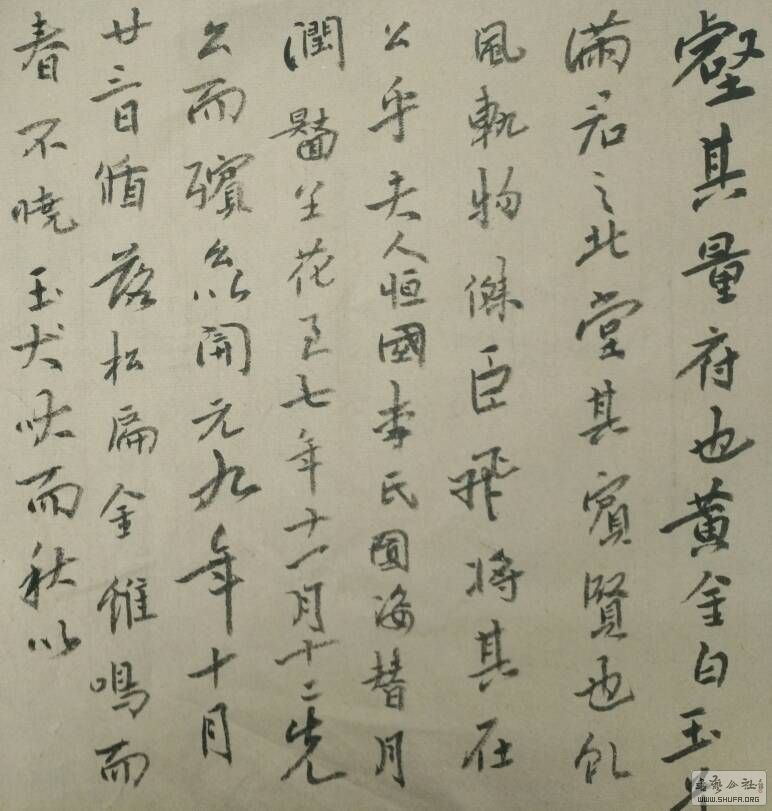 壑其量府也黃金白玉
滿君之北堂其賓賢也
風軌物傑臣飛將其在
公乎夫人恒國李氏圓海替月
潤翳花七年十一月十二先
公而殯以開元九年十月
廿日循落松扁金鳴而
春不曉玉犬吠而秋以
WWW.SHUFA.ORG